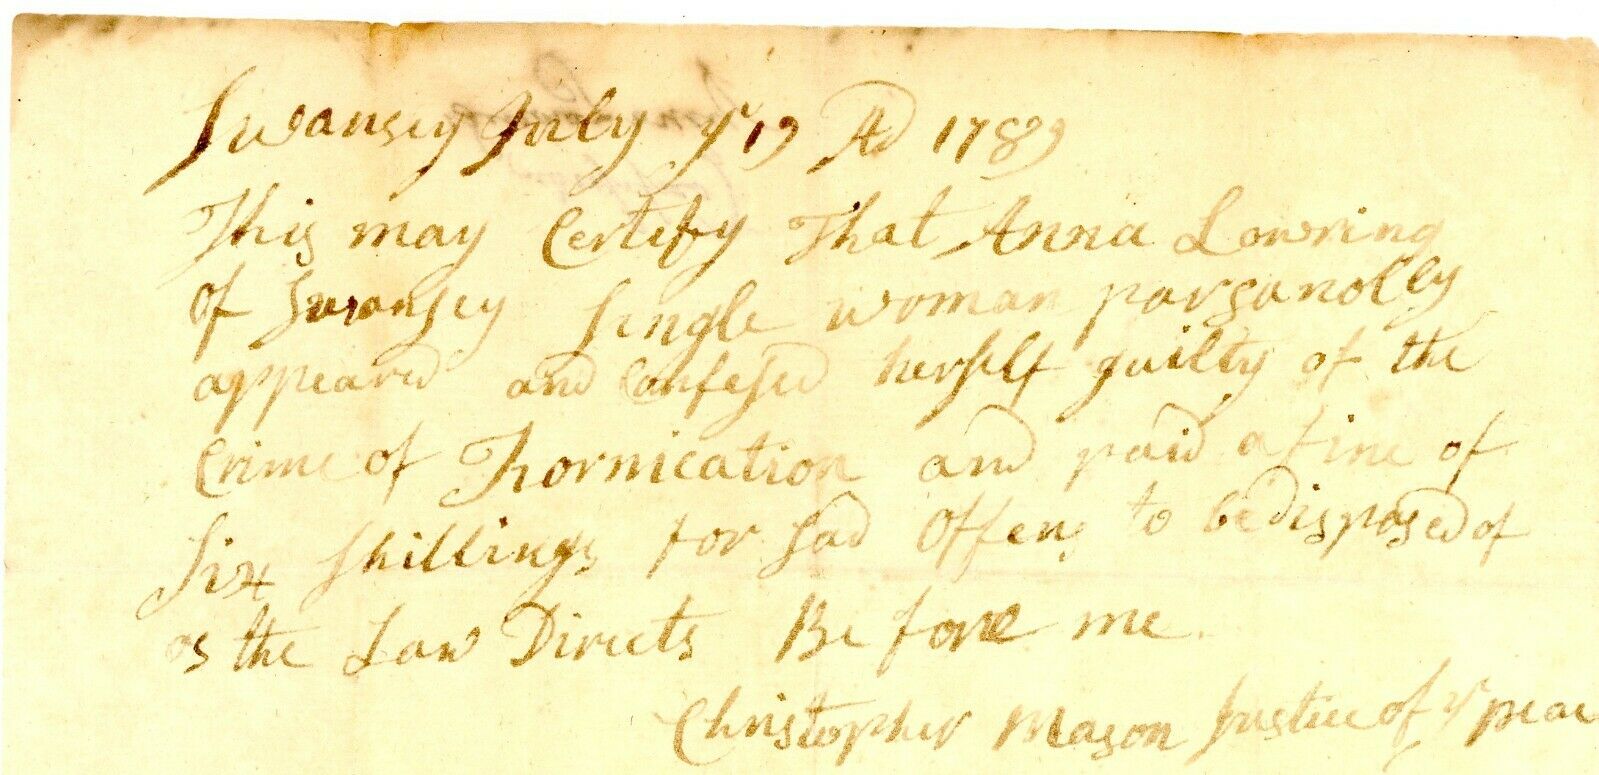 Swansey July ye 19 AD 1789
This may Certify That Anna Lowring
of Swansey Single woman parsanolly
appeared and Confesed herself guilty of the
Crime of Fornication and paid a fine of
Six Shillings for Sad Offens to be disposed of
as the Law Directs Before me.
Christopher Mason Justice of ye peac